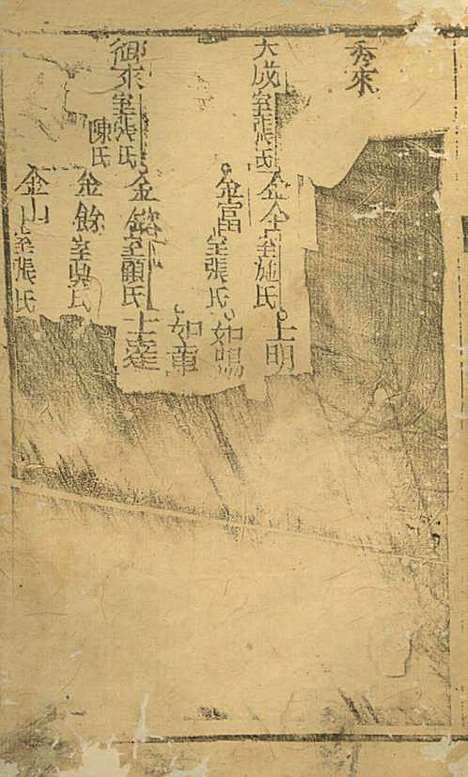 秀來
大成室張氏 金全室施氏 上明
金富室張氏 如賜
如華
御來室張氏 金室顧氏 士達
陳氏 金餘室吳氏
金山室張氏